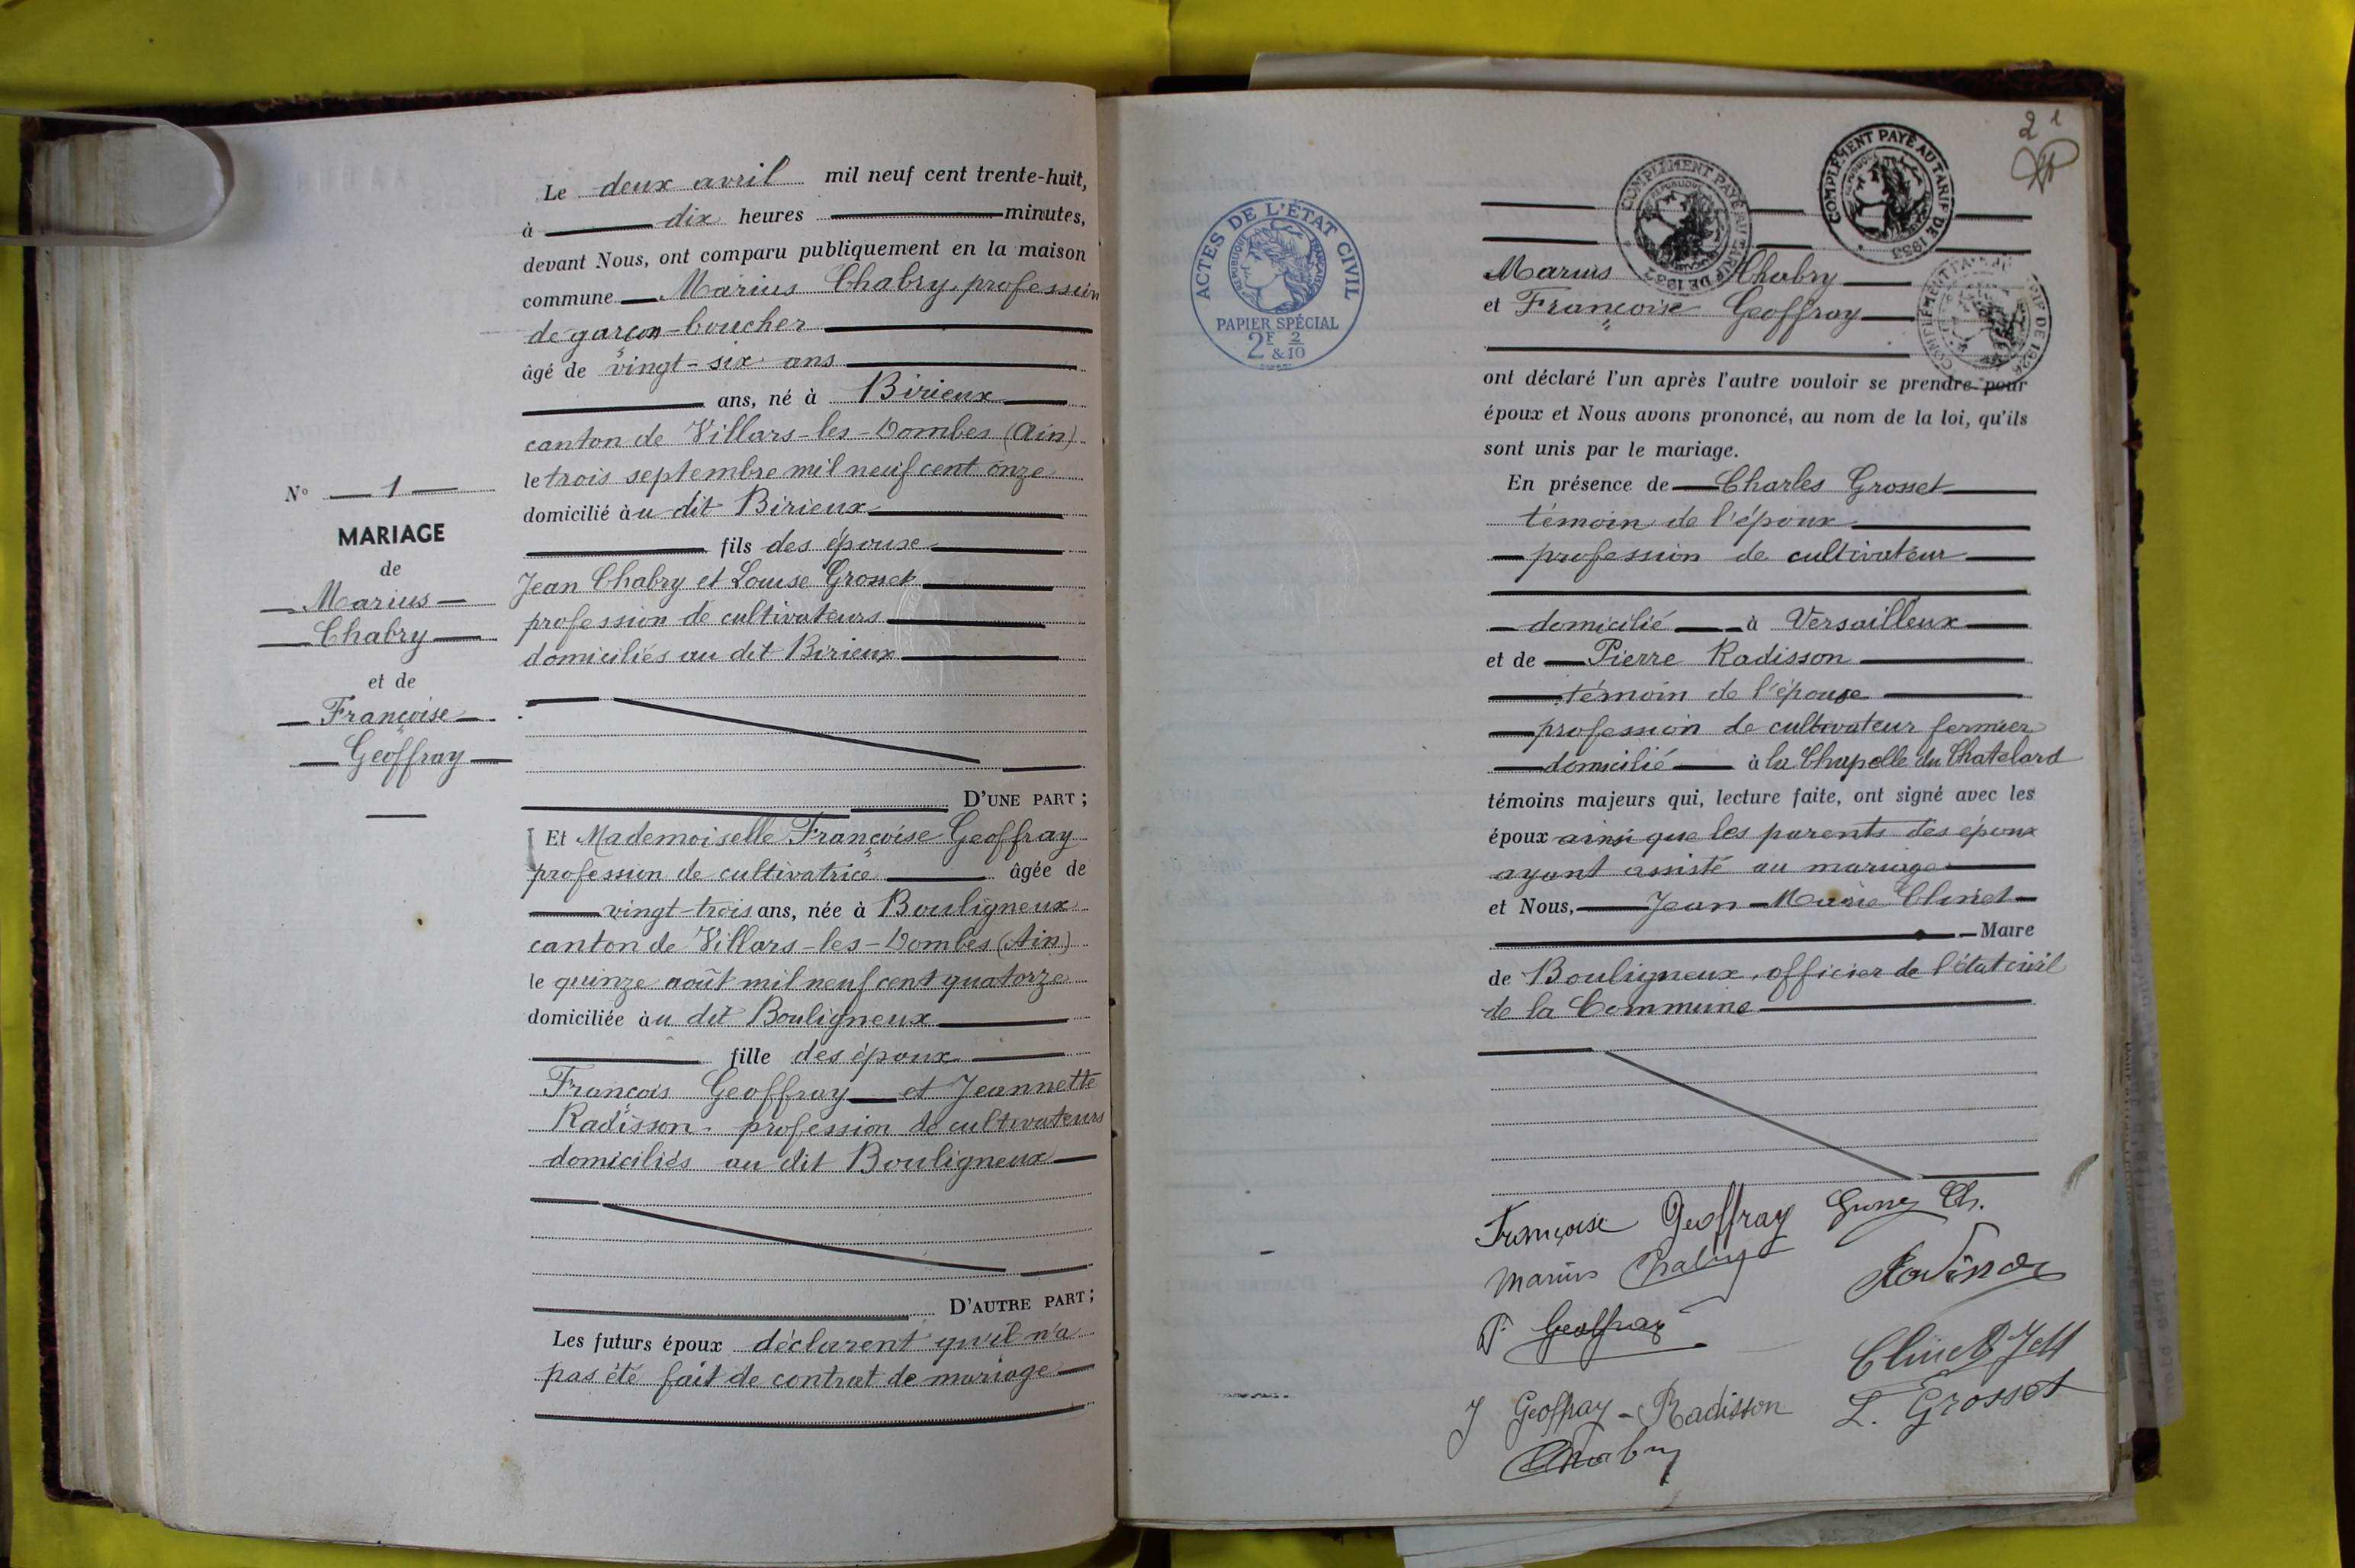 Le deux avril mil neuf cent trente-huit,
à dix heures minutes,
devant Nous, ont comparu publiquement en la maison
commune Marius Chabry, profession
de garçon-boucher
âgé de vingt-six ans
ans, né à Birieux
canton de Villars-les-Dombes (Ain)
le trois septembre mil neuf cent onze
domicilié àu dit Birieux
fils des époux
Jean Chabry et Louise Grosset
profession de cultivateurs
domiciliés au dit Birieux
D'UNE PART ;
N° 1
MARIAGE
de
Marius
Chabry
et de
Françoise
Geoffray
Et Mademoiselle Françoise Geoffray
profession de cultivatrice âgée de
vingt-trois ans, née à Bouligneux
canton de Villars-les-Dombes (Ain)
le quinze août mil neuf cent quatorze
domiciliée àu dit Bouligneux
fille des époux
François Geoffray et Jeannette
Radisson. profession de cultivateurs
domiciliés au dit Bouligneux
D'AUTRE PART ;
Les futurs époux déclarent qu'il n'a
pas été fait de contrat de mariage
2
ACTES DE L'ÉTAT CIVIL
RÉPUBLIQUE FRANÇAISE
PAPIER SPÉCIAL
2F 2
&10
COMPLÉMENT PAYÉ AU TARIF DE
COMPLÉMENT PAYÉ AU TARIF DE 1933
Marius Chabry
et Françoise Geoffray
ont déclaré l'un après l'autre vouloir se prendre pour
époux et Nous avons prononcé, au nom de la loi, qu'ils
sont unis par le mariage.
En présence de Charles Grosset
témoin de l'époux
profession de cultivateur
domicilié à Versailleux
et de Pierre Radisson
témoin de l'épouse
profession de cultivateur fermier
domicilié à la Chapelle du Chatelard
témoins majeurs qui, lecture faite, ont signé avec les
époux ainsi que les parents des époux
ayant assisté au mariage
et Nous, Jean-Marie Clinet
Maire
de Bouligneux, officier de l'état civil
de la Commune
Françoise Geoffray
Marius Chabry
F. Geoffray
Clinet
J Geoffray-Radisson L. Grosset
Chabry